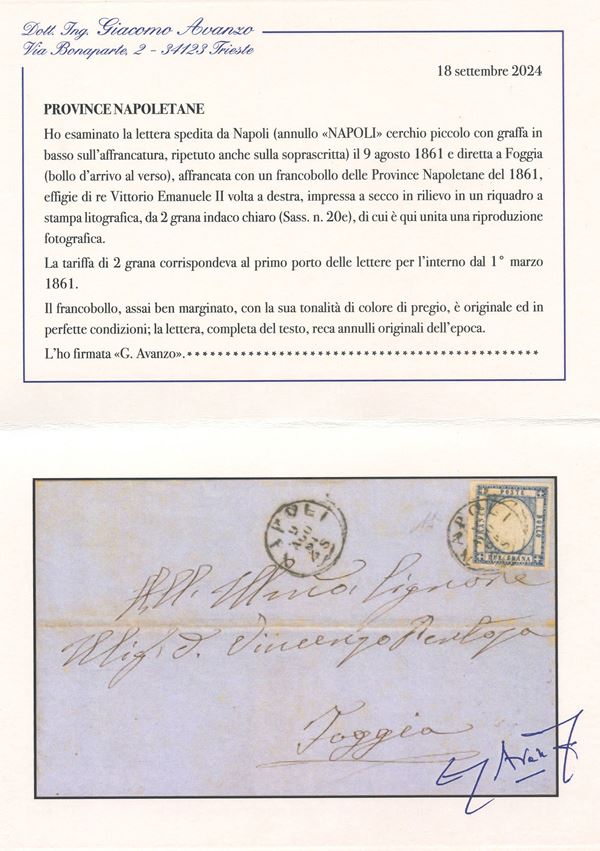 Dott. Ing. Giacomo Avanzo
Via Bonaparte, 2 - 34123 Trieste
18 settembre 2024
PROVINCE NAPOLETANE
Ho esaminato la lettera spedita da Napoli (annullo «NAPOLI» cerchio piccolo con graffa in
basso sull'affrancatura, ripetuto anche sulla soprascritta) il 9 agosto 1861 e diretta a Foggia
(bollo d'arrivo al verso), affrancata con un francobollo delle Province Napoletane del 1861,
effigie di re Vittorio Emanuele II volta a destra, impressa a secco in rilievo in un riquadro a
stampa litografica, da 2 grana indaco chiaro (Sass. n. 20e), di cui è qui unita una riproduzione
fotografica.
La tariffa di 2 grana corrispondeva al primo porto delle lettere per l'interno dal 1° marzo
1861.
Il francobollo, assai ben marginato, con la sua tonalità di colore di pregio, è originale ed in
perfette condizioni; la lettera, completa del testo, reca annulli originali dell'epoca.
L'ho firmata «G. Avanzo».********************************************
NAPOLI
9
AGO
61
NAPOLI
POSTE
BOLLO
DUE GRANA
Signore
D. Vincenzo
Foggia